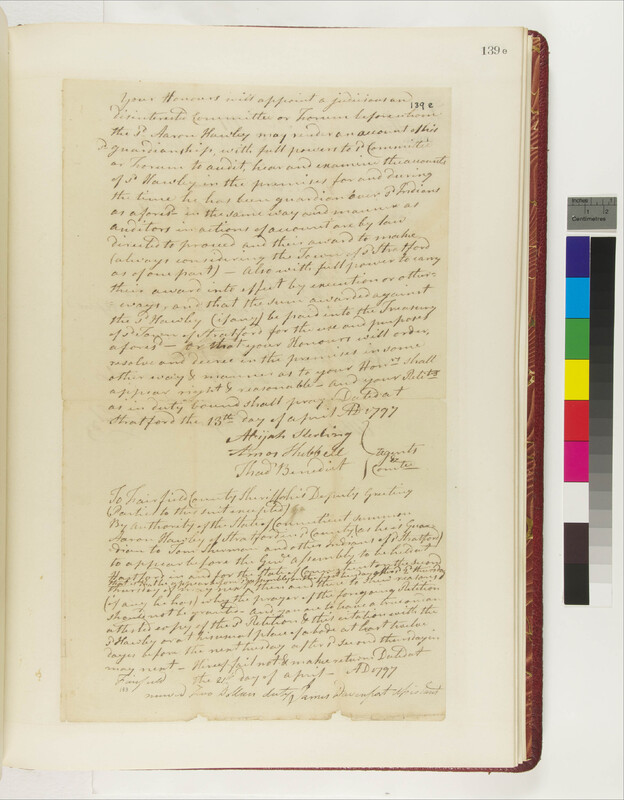 139 e
139 e
Your Honours will appoint a judicious and
disinterested Committee or Forum before whom
the sd Aaron Hawley may render an account of his
sd guardianship, with full powers to sd Committe
or Forum to audit, hear and examine the accounts
of sd Hawley in the premises for and during
the time he has been guardian over sd Indians
as aforesd in the same way and manner as
auditors in actions of account are by law
directed to proceed and their award to make
(always considering the Town of sd Stratford
as of one part) – Also with full power to carry
their award into effect by execution or other-
ways, and that the sum awarded against
the sd Hawley (if any) be paid into the Treasury
of sd Town of Stratford for the use and purposes
aforesd – or that your Honours will order,
resolve and decree in the premises in some
other way & manner as to your Honrs shall
appear right & reasonable – and your Petitrs
as in duty bound shall pray Dated at
Stratford the 13th day of april AD 1797
Abijah Sterling
Amos Hubbell
Thads Benedict
agents
Comtee
To Fairfield County Sheriff his Deputy Greeting
(Parties to this suit excepted)
By Authority of the State of Connecticut summon
Aaron Hawley of Stratford in sd County (as he is Guar-
dian to Tom Sherman and other Indians of sd Stratford)
to appear before the Genl Assembly to be held at
Hartford in and for the State of Connecticut on the second
thursday of may next then and there to shew reasons
(if any he has) why the prayer of the foregoing Petition
should not be granted – and you are to leave a true and
attested copy of the sd Petition & this citation with the
sd Hawley or at his usual place of abode at least twelve
days before the next tuesday after sd second thursday in
may next – hereof fail not & make return Dated at
Fairfield the 25 day of april – AD 1797
received Two Dollars duty James Davenport Assistant
Inches
1
2
Centimetres